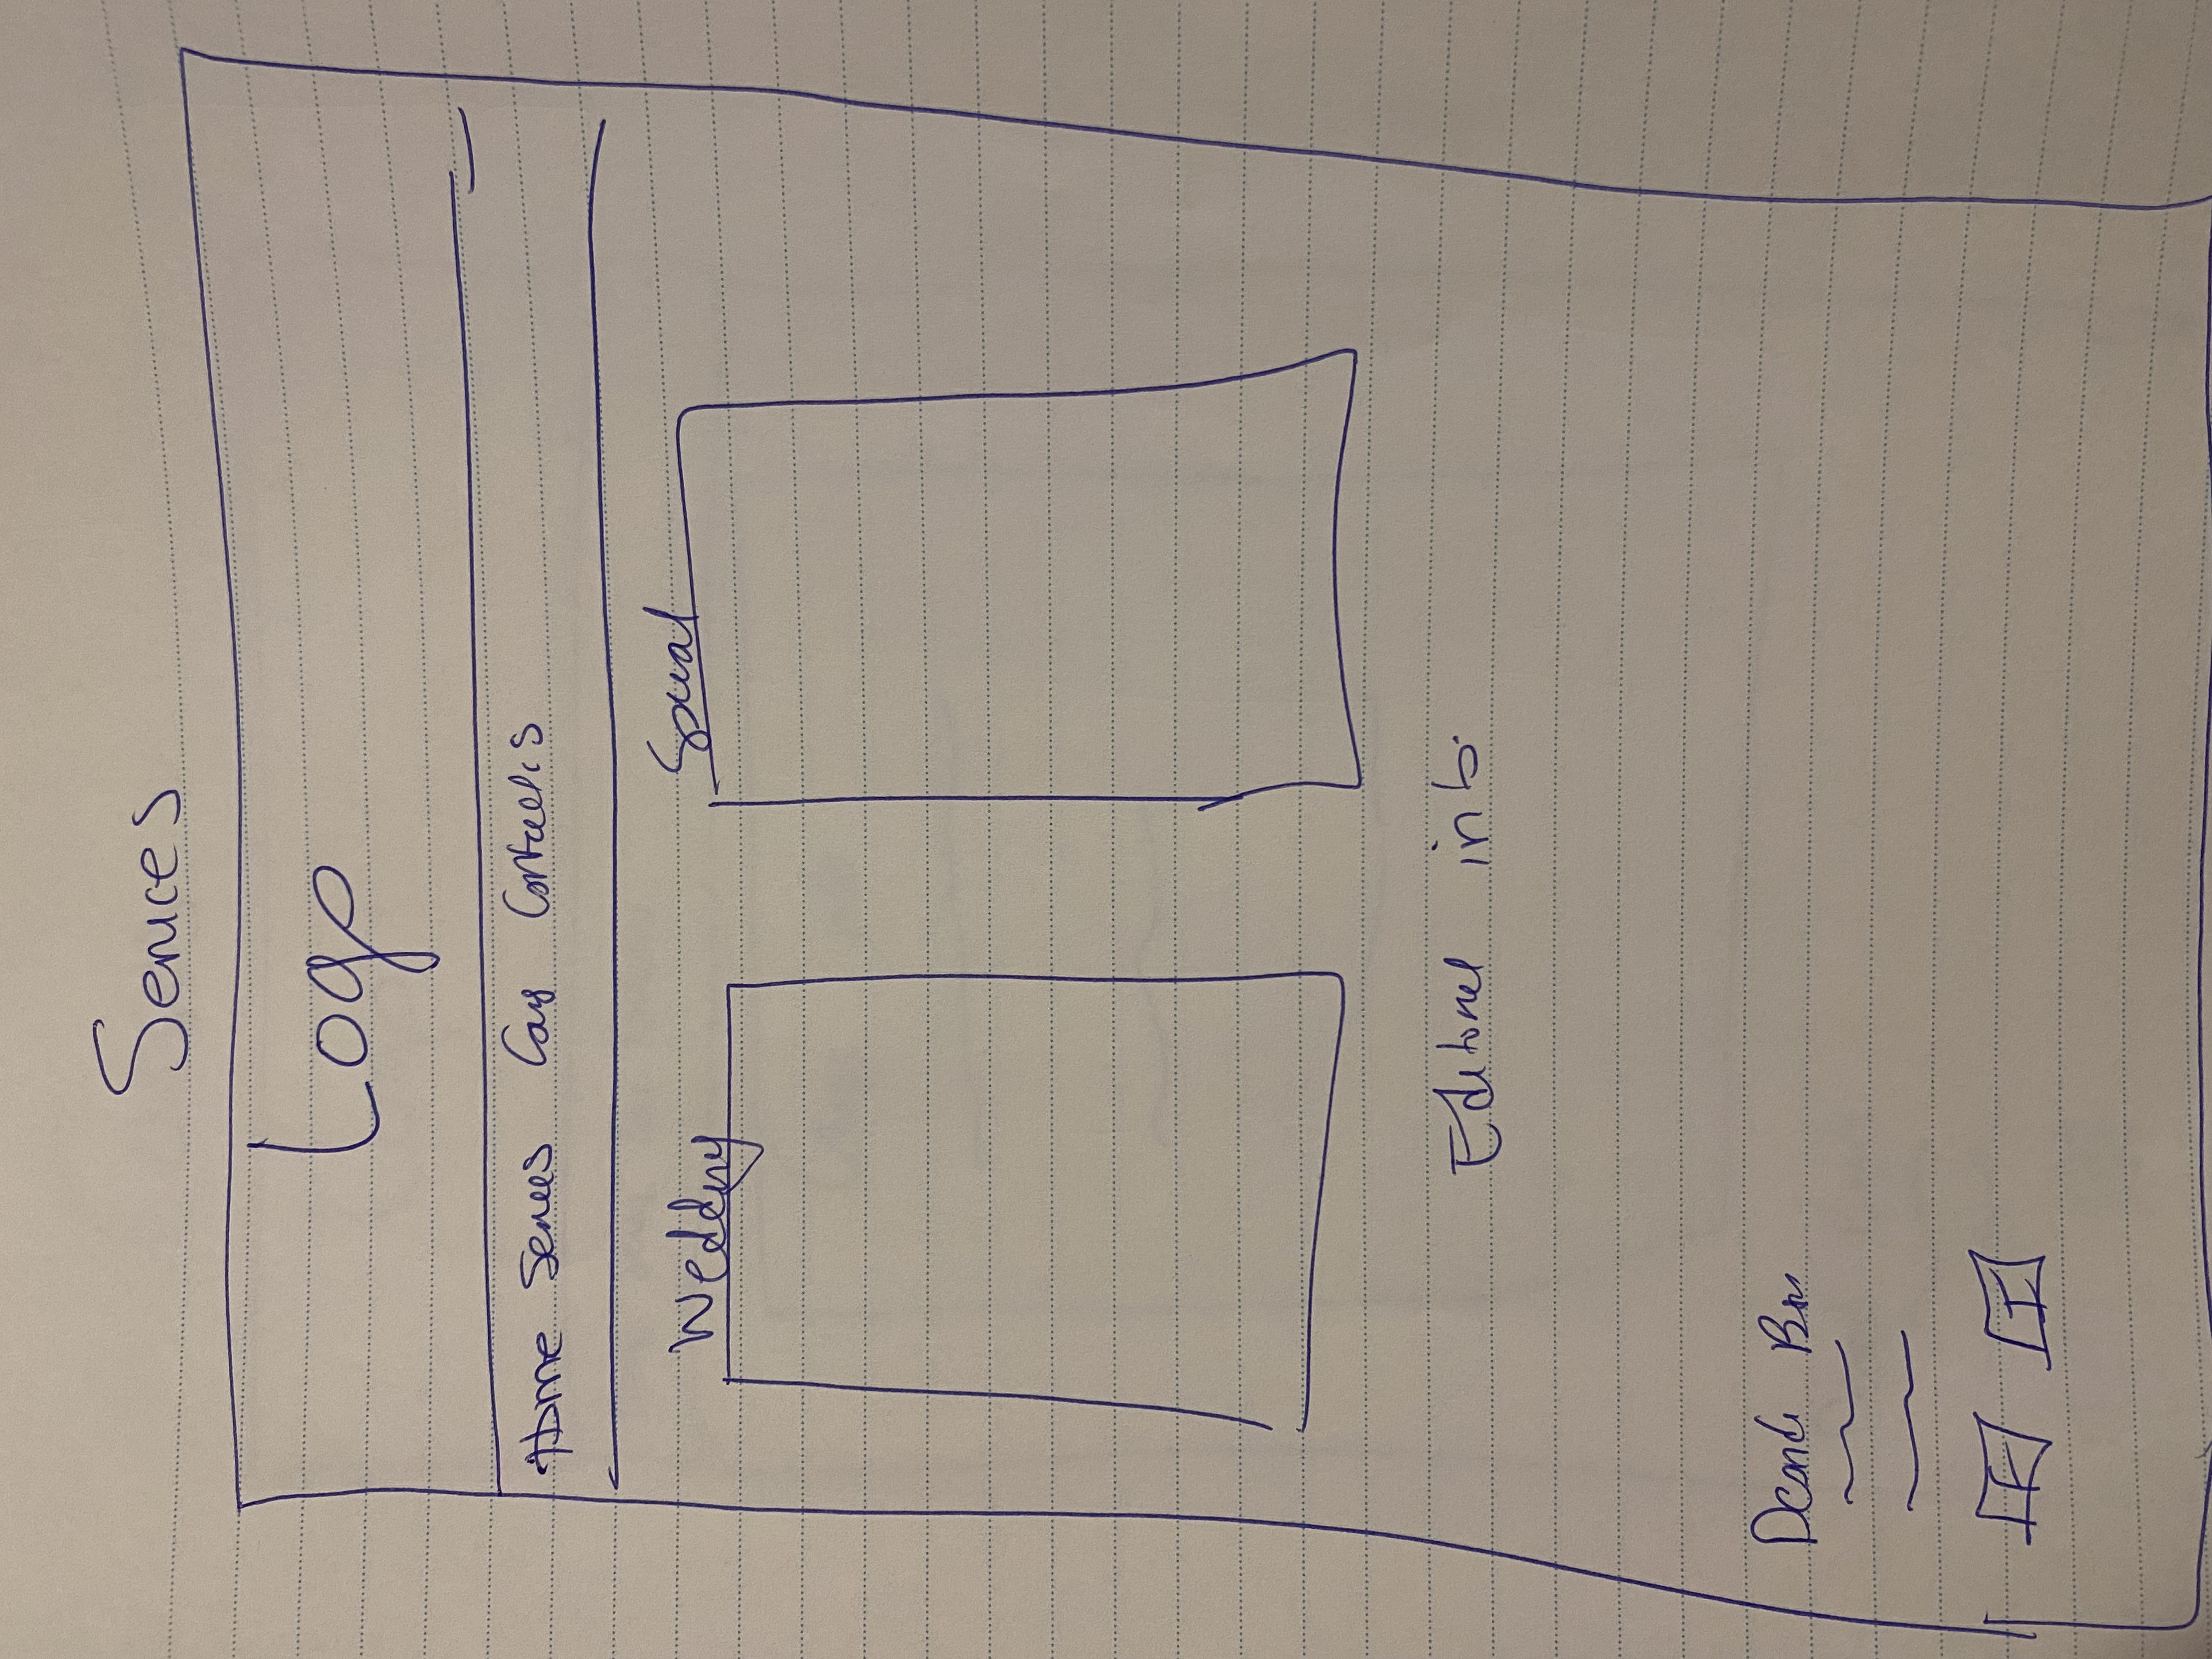 Services
Logo
Home Services Cars Contact Us
Wedding Special
Editorial info
F I